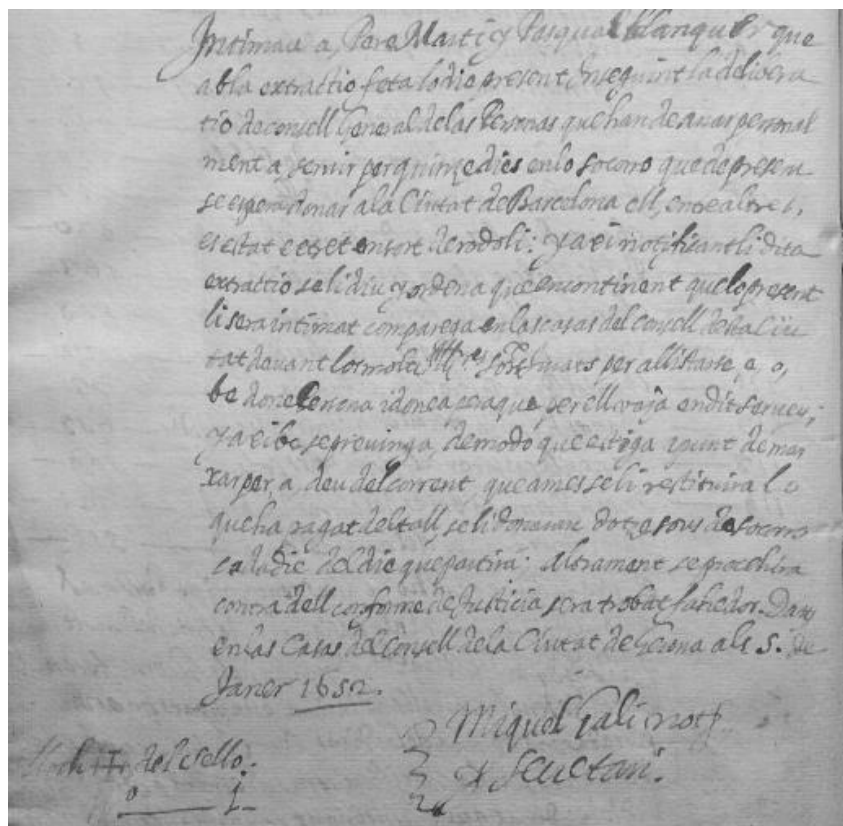 Intimau a, Pere Marti y Pasqual blanquer que
ab la extractio feta lo die present, inseguint la delibera
tio de consell General de las Personas que han de anar personal
ment a servir per quinze dies en lo socorro que de present
se espera donar a la Ciutat de Barcelona ell, entre altres,
es estat extret en sort de rodoli: y axi notificantli dita
extractio se li diu y ordena que encontinent que lo present
li sera intimat comparega en las casas del consell desta Ciu
tat devant los molt Illres Sors Jurats per allistarse, e, o,
be done Persona idonea peraque, per ell vaja en dit servey;
y axi be se previnga, de modo que estiga apunt de mar
xar per, a, deu del corrent que ames se li restituira lo
que ha pagat del tall, se li donaran dotze sous de socorro
cada die del die que partira: Altrament se procehira
contra dell conforme de Justicia sera trobat fahedor. Dat
en las Casas del Consell de la Ciutat de Gerona als 5. de
Janer 1652.
Miquel Gali not.
del sello.